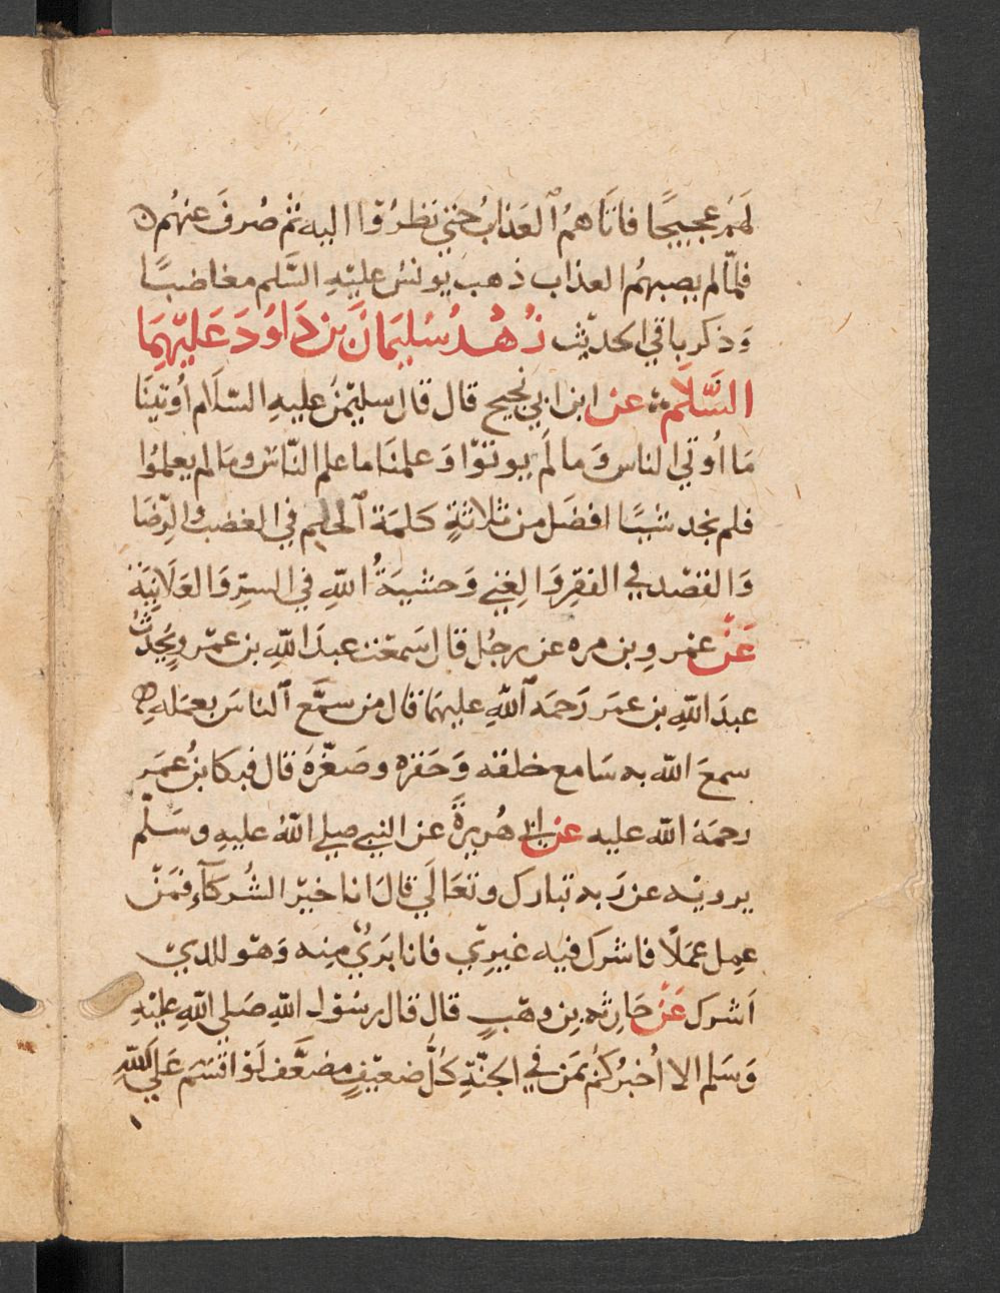 لهم عجيجا فاتاهمُ العَذابُ حتي نظرُوا اليه ثم صُرفَ عنهُم
فلمّا لم يصبهمُ العذاب ذهب يونس عليْهِ السَّلم مغاضبًا
وَذكر باقي الحديْث زُهْدُ سُليمَانَ بن دَاوُدَ عَليْهِمَا
السَّلَام عن ابن ابي نجيح قال قال سليْمنُ عليهِ السّلَام أُوتينَا
مَا اُوتي الناس وَما لَم يوتوْا وَعلمنَا ما علم النّاس وما لم يعلمُوا
فلم نجد شيًا افضَل من ثلاثةٍ كلمَة الحلم في الغضب والرّضَا
وَالقصْد في الفقرِ وَالغِني وَخشيَةُ اللهِ في السرِّ وَالعَلَانيَة
عَنْ عمْر وِبن مره عن رجُل قال سَمعْت عبدَ اللهِ بن عمْروٍ يُحدّثُ
عبدَ اللهِ بن عمَر رَحمَه اللهِ عليهمَا قال من سمَّع الناسَ بعمَلهِ
سمعَ الله به سَامع خلقه وَحَقره وصَغّرَهُ قال فبكا بنُ عمَر
رحمَة الله عليه عن ابي هُريرةَ عن النبي صلي اللهُ عليهِ وسَلّم
يرويْه عن رَبه تبارك وتعَالَي قالَ انا خيْر الشُركآء فمَنْ
عمِل عمَلًا فاشرك فيه غيرِي فانا بَريٌ منه وَهوَ للذيْ
اَشرك عَنْ حَارثه بن وهْبٍ قال قال رسُوْل اللهِ صَلي اللهِ عليْهِ
وَسَلم الا اُخبرُكمْ بمَن في الجنّةِ كُلُّ ضعيْفٍ مضعَّف لَوْ اقسَم عَلي اللهِ